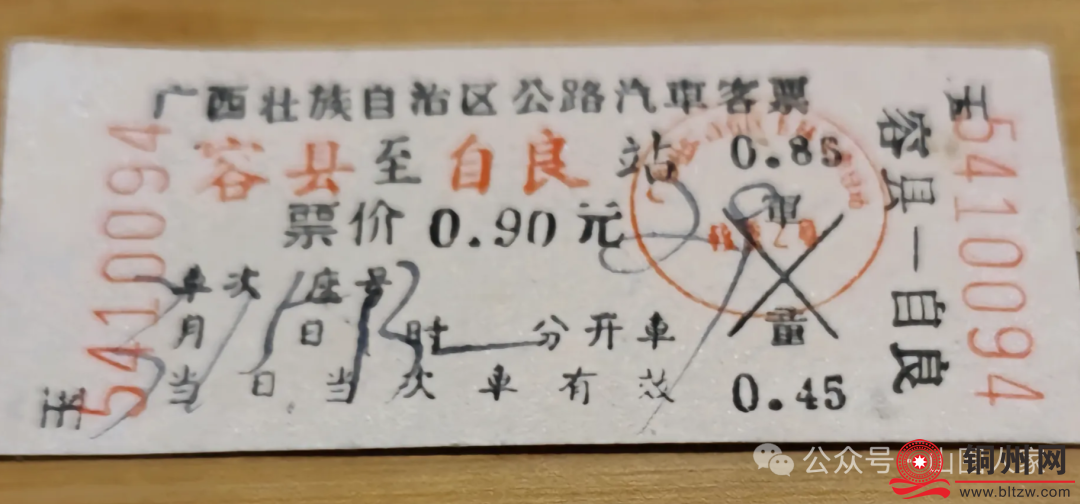 广西壮族自治区公路汽车客票
容县至自良站 0.85
票价 0.90 元
车次 座号
月 日 时 分开车
当日当次车有效 0.45
玉 5410094
容县—自良
玉 5410094
公众号
铜州网
www.bltzw.com